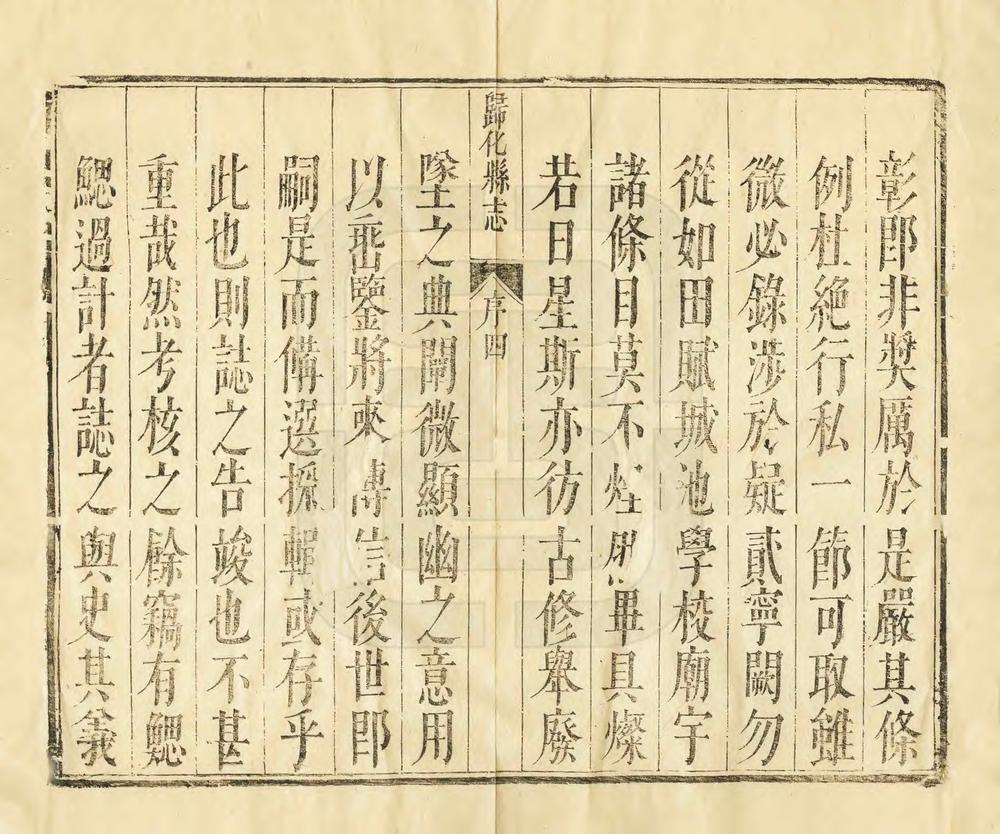 彰郎非獎厲於是嚴其條
例杜絶行私一節可取雖
微必錄涉於疑貳寧闕勿
從如田賦城池學校廟宇
諸條目莫不炷畢具燦
若日星斯亦彷古修舉廢
歸化縣志
序四
墜之典闡微顯幽之意用
以垂鑒將來傳信後世郎
嗣是而備選採輯或存乎
此也則誌之告竣也不甚
重哉然考核之餘竊有鰓
鰓過計者誌之與史其義